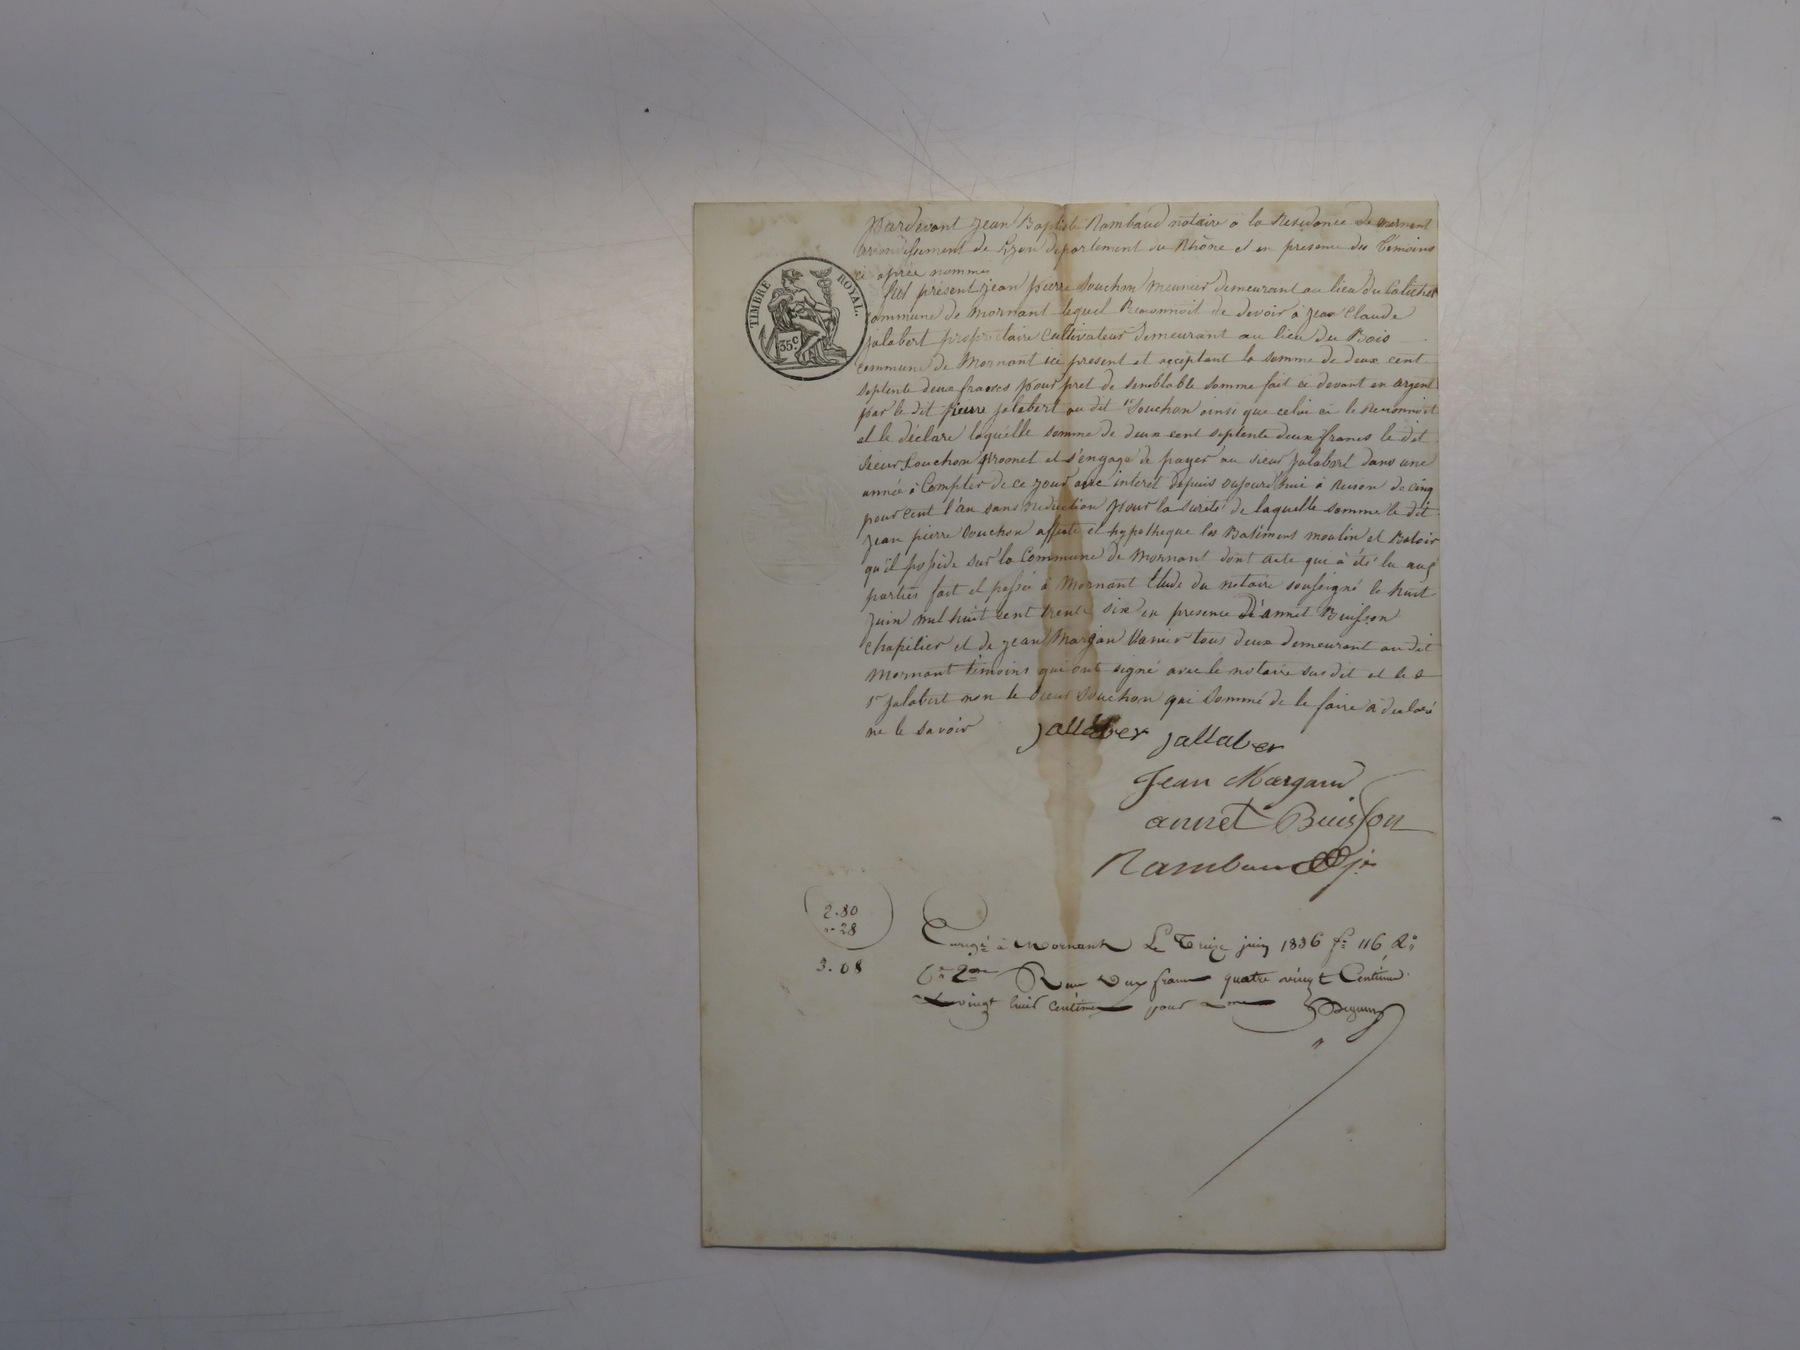 Pardevant Jean Baptiste Rambaud notaire à la Residence de Mornant
arrondissement de Lyon departement du Rhône et en presence des temoins
ci après nommes
TIMBRE ROYAL.
35.c
fut présent Jean pierre Souchon Meunier demeurant au lieu du
Commune de Mornant lequel Reconnoit de devoir à Jean Claude
Jalabert propriétaire Cultivateur demeurant au lieu du Bois
commune de Mornant ici present et acceptant la somme de deux cent
septente deux francs pour pret de semblable somme fait ci devant en argent
par le dit pierre jalabert au dit Sr Souchon ainsi que celui ci le Reconnoit
et le déclare laquelle somme de deux cent septente deux francs le dit
sieur Souchon promet et s'engage de payer au sieur Jalabert dans une
année à Compter de ce jour avec interet depuis aujourd'hui à Reison de cinq
pour cent l'an sans reduction pour la sureté de laquelle somme le dit
Jean pierre Souchon affecte et hypotheque les Batiment moulin et Batoir
qu'il possède sur la Commune de Mornant dont acte qui à été lu aux
parties fait et passé à Mornant Etude du notaire soussigné le huit
Juin mil huit cent trente six en presence de annet Buisson
chapelier et de Jean Margan tous deux demeurant au dit
Mornant témoins qui ont signé avec le notaire susdit et le
Sr Jalabert non le Sieur Souchon qui Sommé de le faire à declaré
ne le savoir
Jallaber Jallaber
Jean Margand
annet Buisson
Rambaud
2.80
"-28
3.08
Enregé à Mornant Le treize juin 1836 fo 116 Ro
Co 2me Reçu Deux francs quatre vingt Centimes
& vingt huit centimes pour Dme